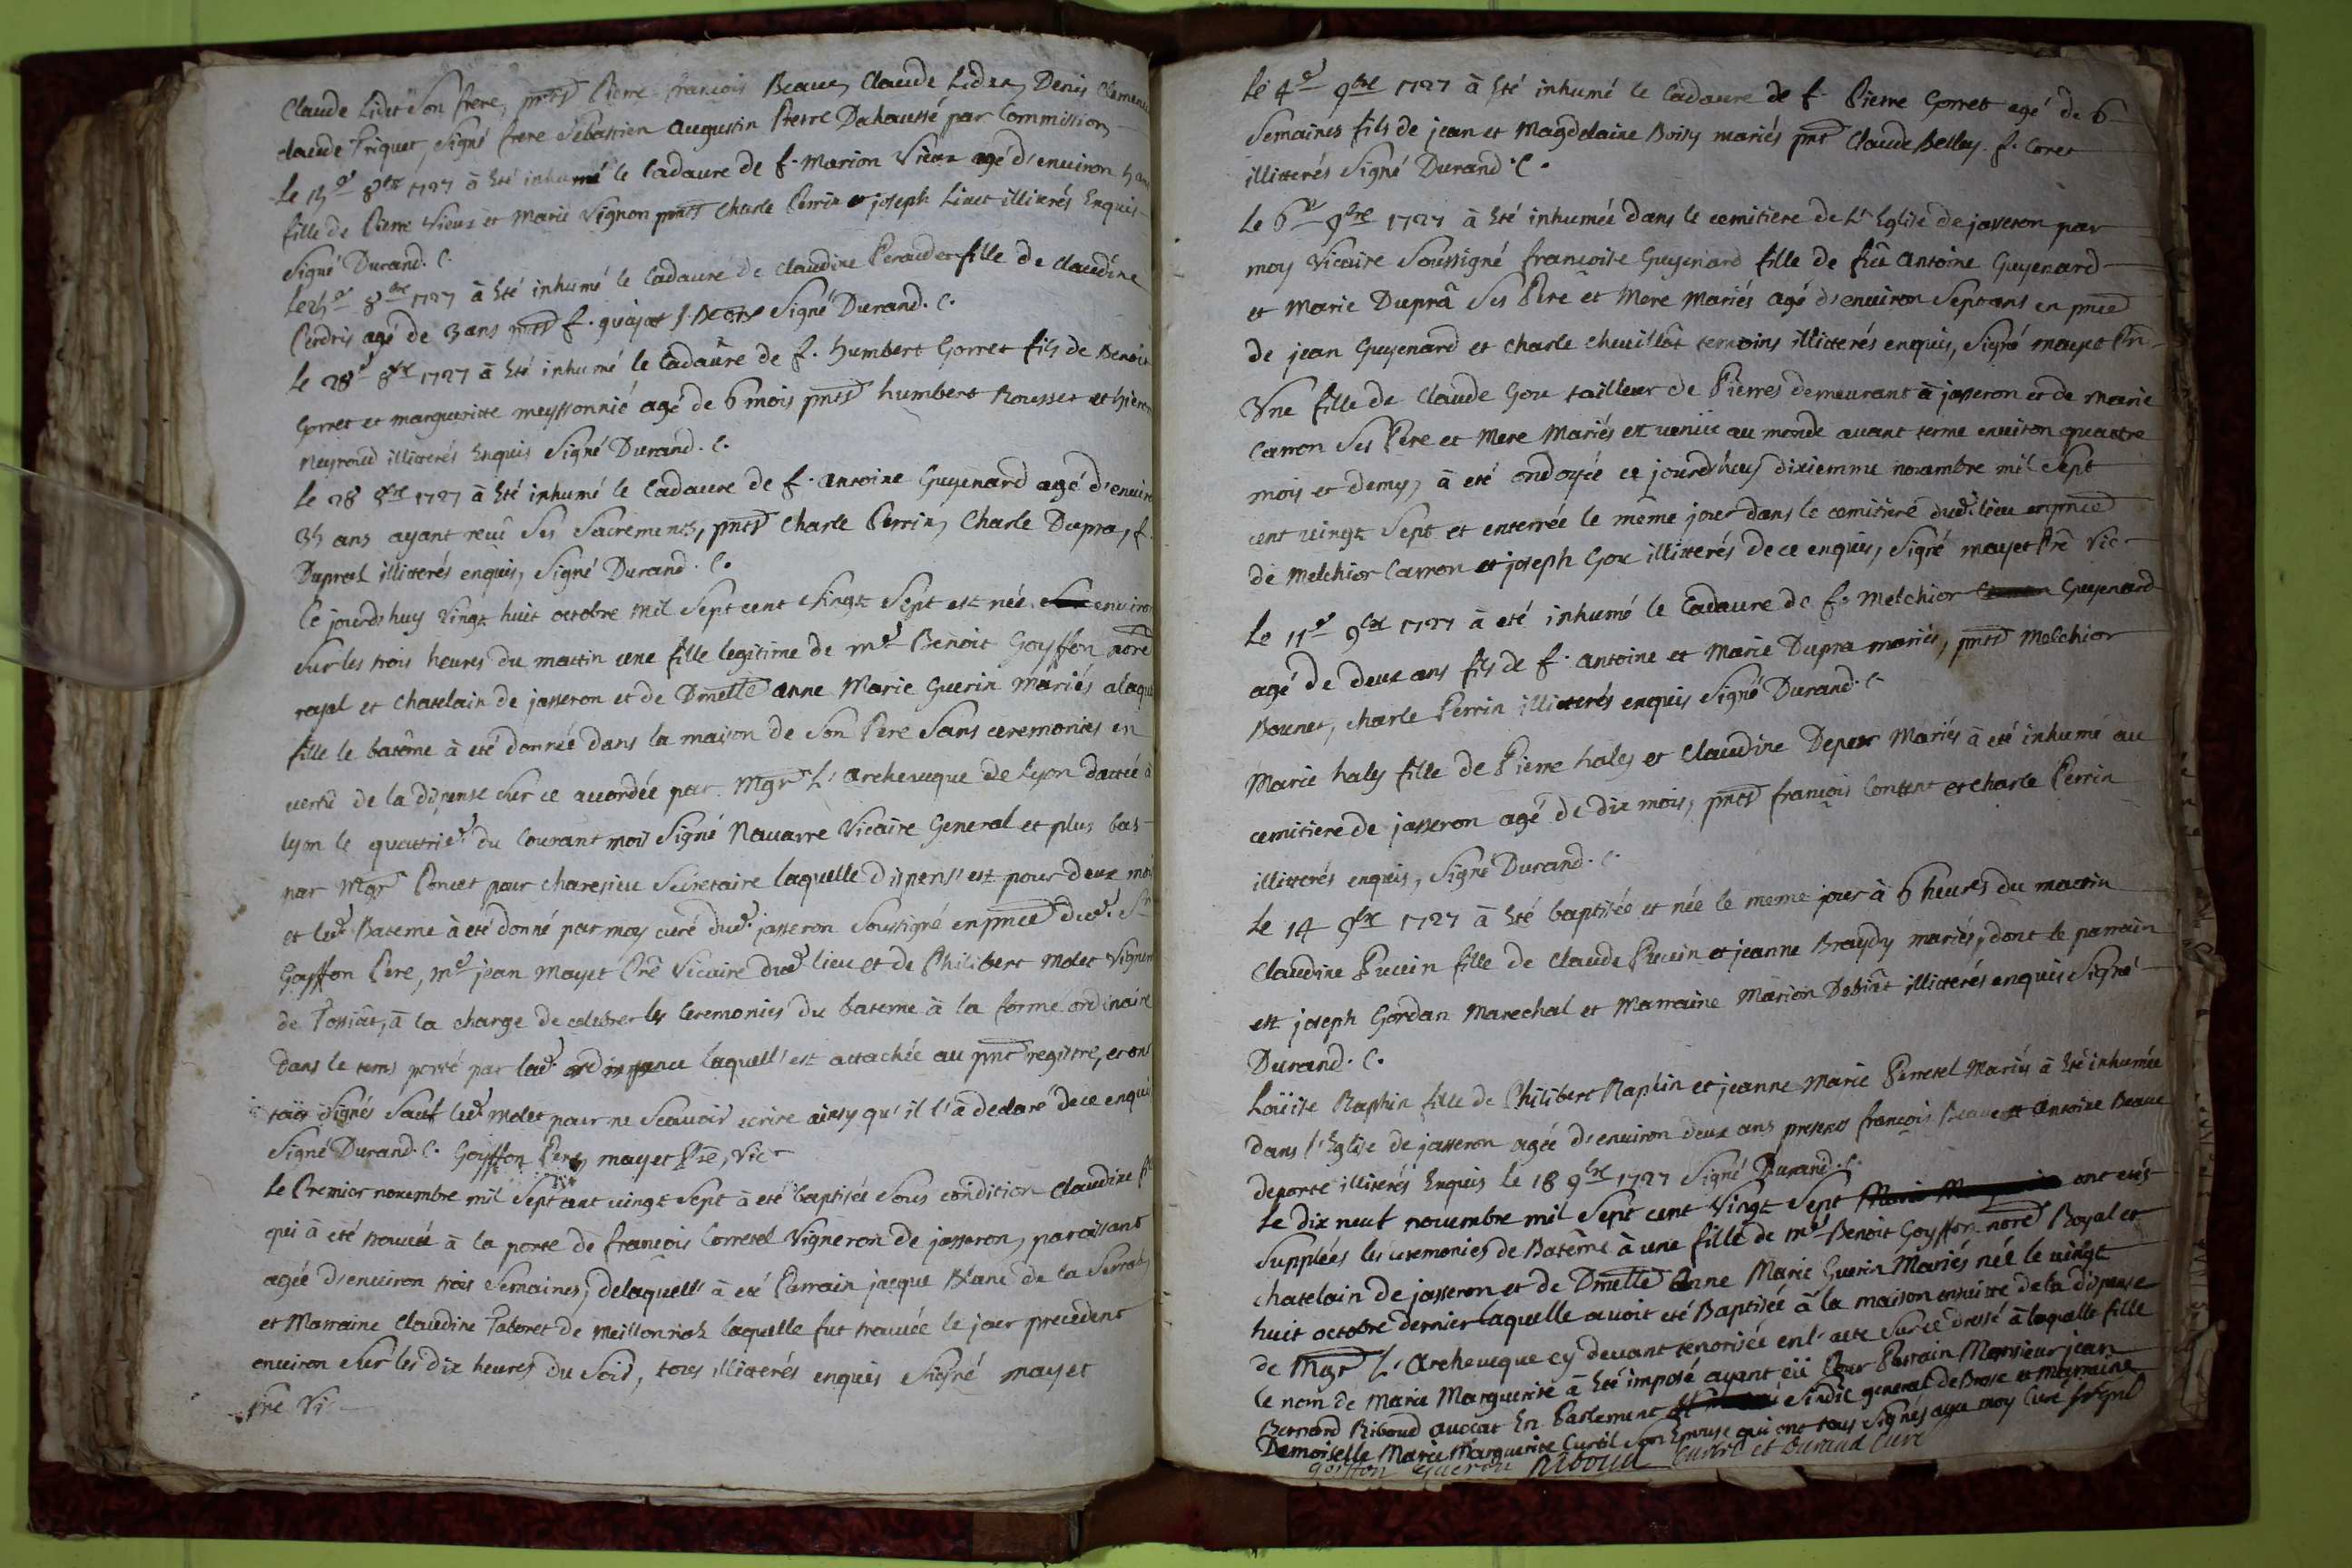 Claude Lidet son frere, pnts Pierre françois Beaue, Claude Lidet, Denis Clemens
claude Friquet, signé frere Sebastien Augustin Pierre Dehaussé par Commission
Le 8bre 1727 à été inhumé le Cadaure de f. Marion Vieux agé d'environ
fille de Pierre Vieux et Marie Vignon pnts Charle Perrin et joseph Livet illiterés Enquis
signé Durand. C.
Le 8bre 1727 à été inhumé le Cadaure de Claudine Peraudet fille de Claudine
Perdrix agé de 3 ans pnts f. guajat signé Durand. C.
Le 28e 8bre 1727 à été inhumé le Cadaure de f. humbert Gorret fils de Benoit
Gorret et margueritte meyssonnié agé de 6 mois pnts humbert Rousset et
Neyroud illiterés Enquis signé Durand. C.
Le 28 8bre 1727 à été inhumé le Cadaure de f. antoine Guyenard agé d'enviro
35 ans ayant reçu ses sacrements, pnts Charle Perrin, Charle Dupra, f.
Duprah illiterés enquis, signé Durand. C.
Ce jourdhuy vingt huit octobre mil sept cent vingt sept est née environ
sur les trois heures du mattin une fille legitime de me Benoit Goyffon nore
royal et Chatelain de jasseron et de Dmelle anne Marie Guerin Mariés a laque
fille le batême à eté donnée dans la maison de son Pere sans ceremonies en
vertu de la dispense sur ce accordée par Mgr L'Archeveque de Lyon dattée à
lyon le quattrie. du Courant mois signé Navarre Vicaire General et plus bas
par Mgr Poncet pour charesieu Secretaire laquelle dispens' est pour deux moi
et led. Bateme à eté donné par moy curé dud. jasseron soussigné en pnce dud. Sr
Goyffon Pere, me jean Mayet Pre Vicaire dud. lieu et de Philibert Molet Vigner
de Tossiat, à la charge de celebrer les Ceremonies du bateme à la forme ordinaire
dans le tems porté par lad. ordonnance laquell' est attachée au pnt registre, et ont
tous signés sauf led. Molet pour ne sçavoir ecrire ainsy qu'il l'a declaré de ce enquis
signé Durand. C. Goyffon Pere, mayet Pre, Vic
Le Premier novembre mil sept cent vingt sept à eté baptisée sous condition Claudine
qui à eté trouvée à la porte de françois Corretel Vigneron de jasseron, paroissant
agée d'environ trois semaines, delaquell' à eté Parrain jacque Blanc de la Serraz
et Marraine Claudine Taboret de Meillonnah laquelle fut trouvée le jour precedent
environ sur les dix heures du soir, tous illiterés enquis signé mayet
pre Vic
Le 4e 9bre 1727 à été inhumé le Cadaure de f. Pierre Gorret agé de 6
semaines fils de jean et Magdelaine Boisy mariés pnt Claude Belley. f. Coret
illiterés signé Durand C.
Le 6e 9bre 1727 à été inhumée dans le cemitiere de L'Eglise de jasseron par
moy Vicaire soussigné francoise Guyenard fille de fût Antoine Guyenard
et Marie Duprâ ses Pere et Mere Mariés agé d'environ sept ans en pnce
de jean Guyenard et Charle Chevillât temoins illiterés enquis, signé mayet Pre
Une fille de Claude Gou tailleur de Pierres demeurant à jasseron et de Marie
Carron ses Pere et Mere Mariés est venüe au monde avant terme environ quattre
mois et demy, à eté ondoyée ce jourdhuy dixiemme novembre mil sept
cent vingt sept et enterrée le même jour dans le cemitiere dud. lieu en pnce
de Melchior Carron et joseph Gou illiterés de ce enquis, signé mayet Pre Vic
Le 11e 9bre 1727 à été inhumé le Cadaure de f. Melchior Guyenard
agé de deux ans fils de f. Antoine et Marie Dupra mariés, pnts Melchior
Bounet, Charle Perrin illiterés enquis signé Durand. C
Marie haly fille de Pierre haly et Claudine Depeer Mariés à eté inhumé au
cemitiere de jasseron agé de dix mois, pnts françois Content et Charle Perrin
illiterés enquis, signé Durand. C.
Le 14 9bre 1727 à été baptisée et née le meme jour à 6 heures du mattin
Claudine Puvin fille de Claude Puvin et jeanne Braydy mariés, dont le parrain
est joseph Gordan Marechal et Marraine Marion Debiât illiterés enquis signé
Durand. C.
Loüise Raphin fille de Philibert Raphin et jeanne Marie Perretel Mariés à été inhumée
dans l'Eglise de jasseron agée d'environ deux ans presens françois Beaue et Antoine Beaue
deporte illiterés Enquis le 18 9bre 1727 signé Durand. C.
Le dix neuf novembre mil sept cent Vingt sept ont etés
supplées les ceremonies de Batême à une fille de me Benoit Goyffon nore Royal et
chatelain de jasseron et de Dmelle Anne Marie Guerin Mariés née le vingt
huit octobre dernier laquelle avoit eté Baptisée à la maison ensuitte de la dispense
de Mgr L'Archeveque cy devant tenorisée en l'acte sur ce dressé à laquelle fille
le nom de Marie Marguerite à été imposé ayant eü Pour Parrain Monsieur jean
Bernard Riboud avocat En Parlement sindic general de Bresse et Marraine
Demoiselle Marie Marguerite Curtil son Epouse qui ont tous signés avec moy Curé ssigné
Goiffon Guerin Riboud Curtil et Durand Curé